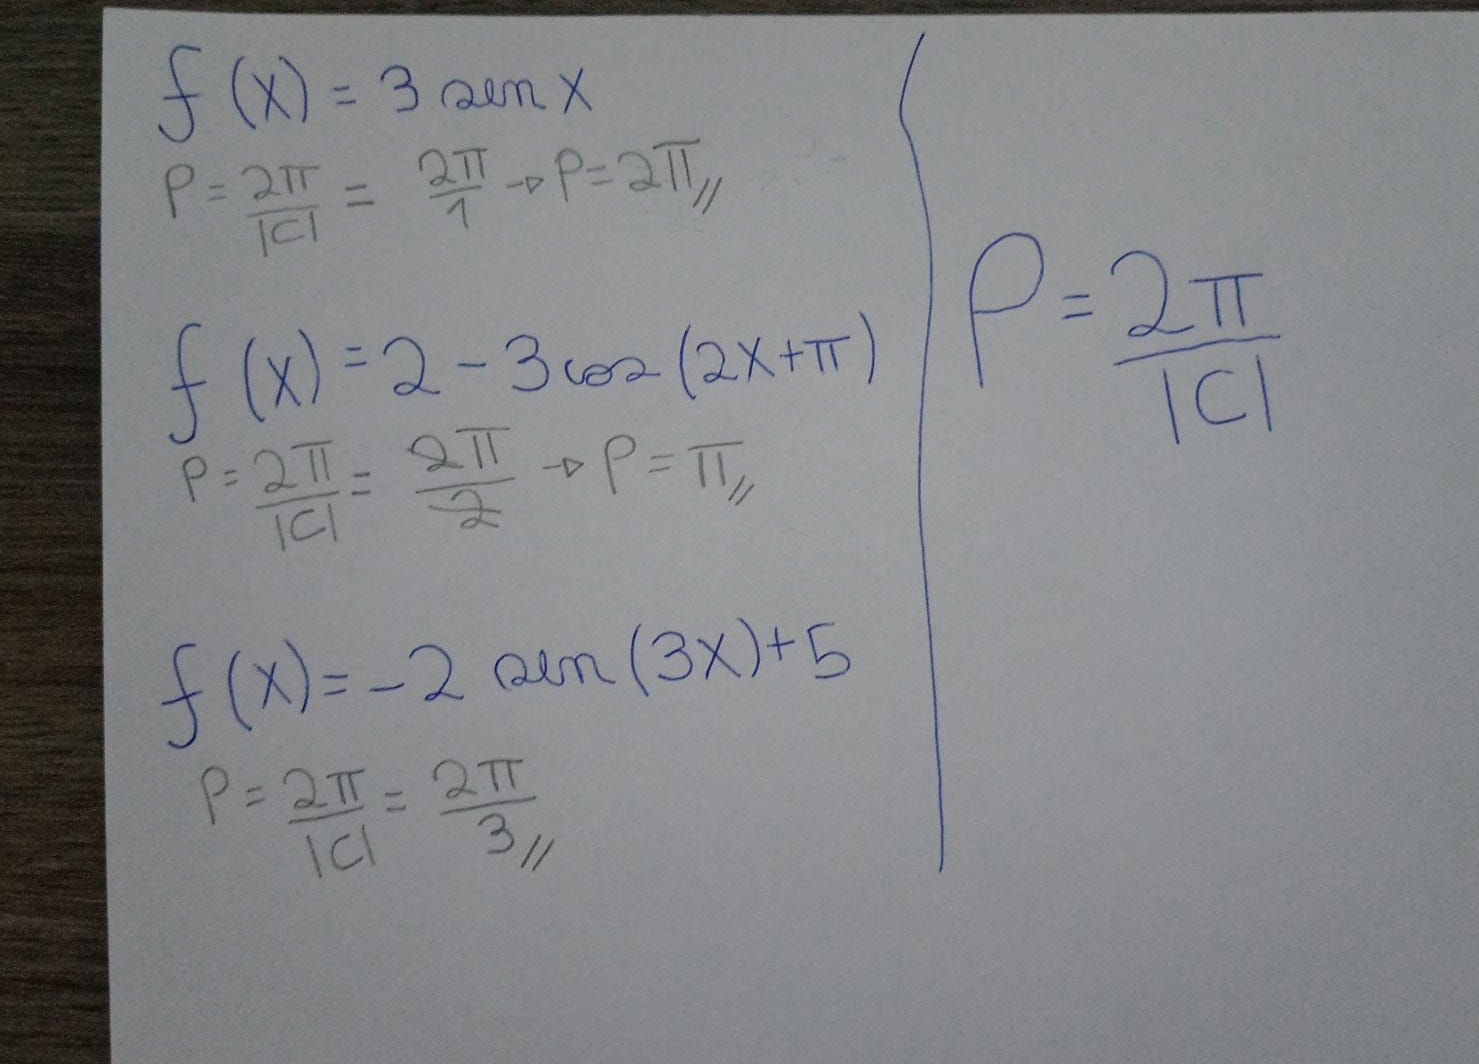 f(x) = 3 sen x
P = 2π/|c| = 2π/1 → P = 2π//
f(x) = 2 - 3 cos (2x + π)
P = 2π/|c| = 2π/2 → P = π//
f(x) = -2 sen (3x) + 5
P = 2π/|c| = 2π/3//
P = 2π/|c|